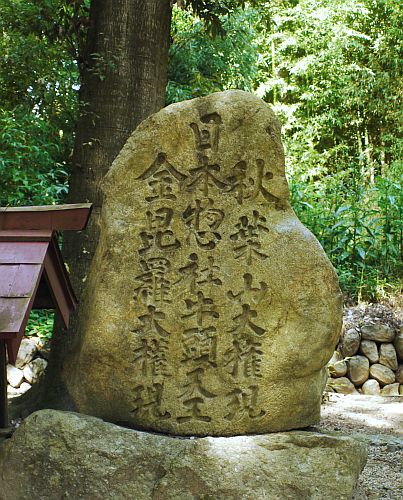 秋葉山大権現
日本惣社牛頭天王
金毘羅大権現